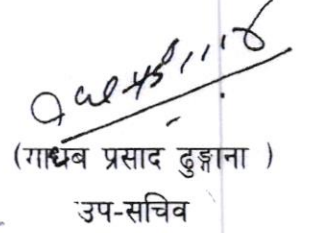 (माधब प्रसाद ढुङ्गाना )
उप-सचिव